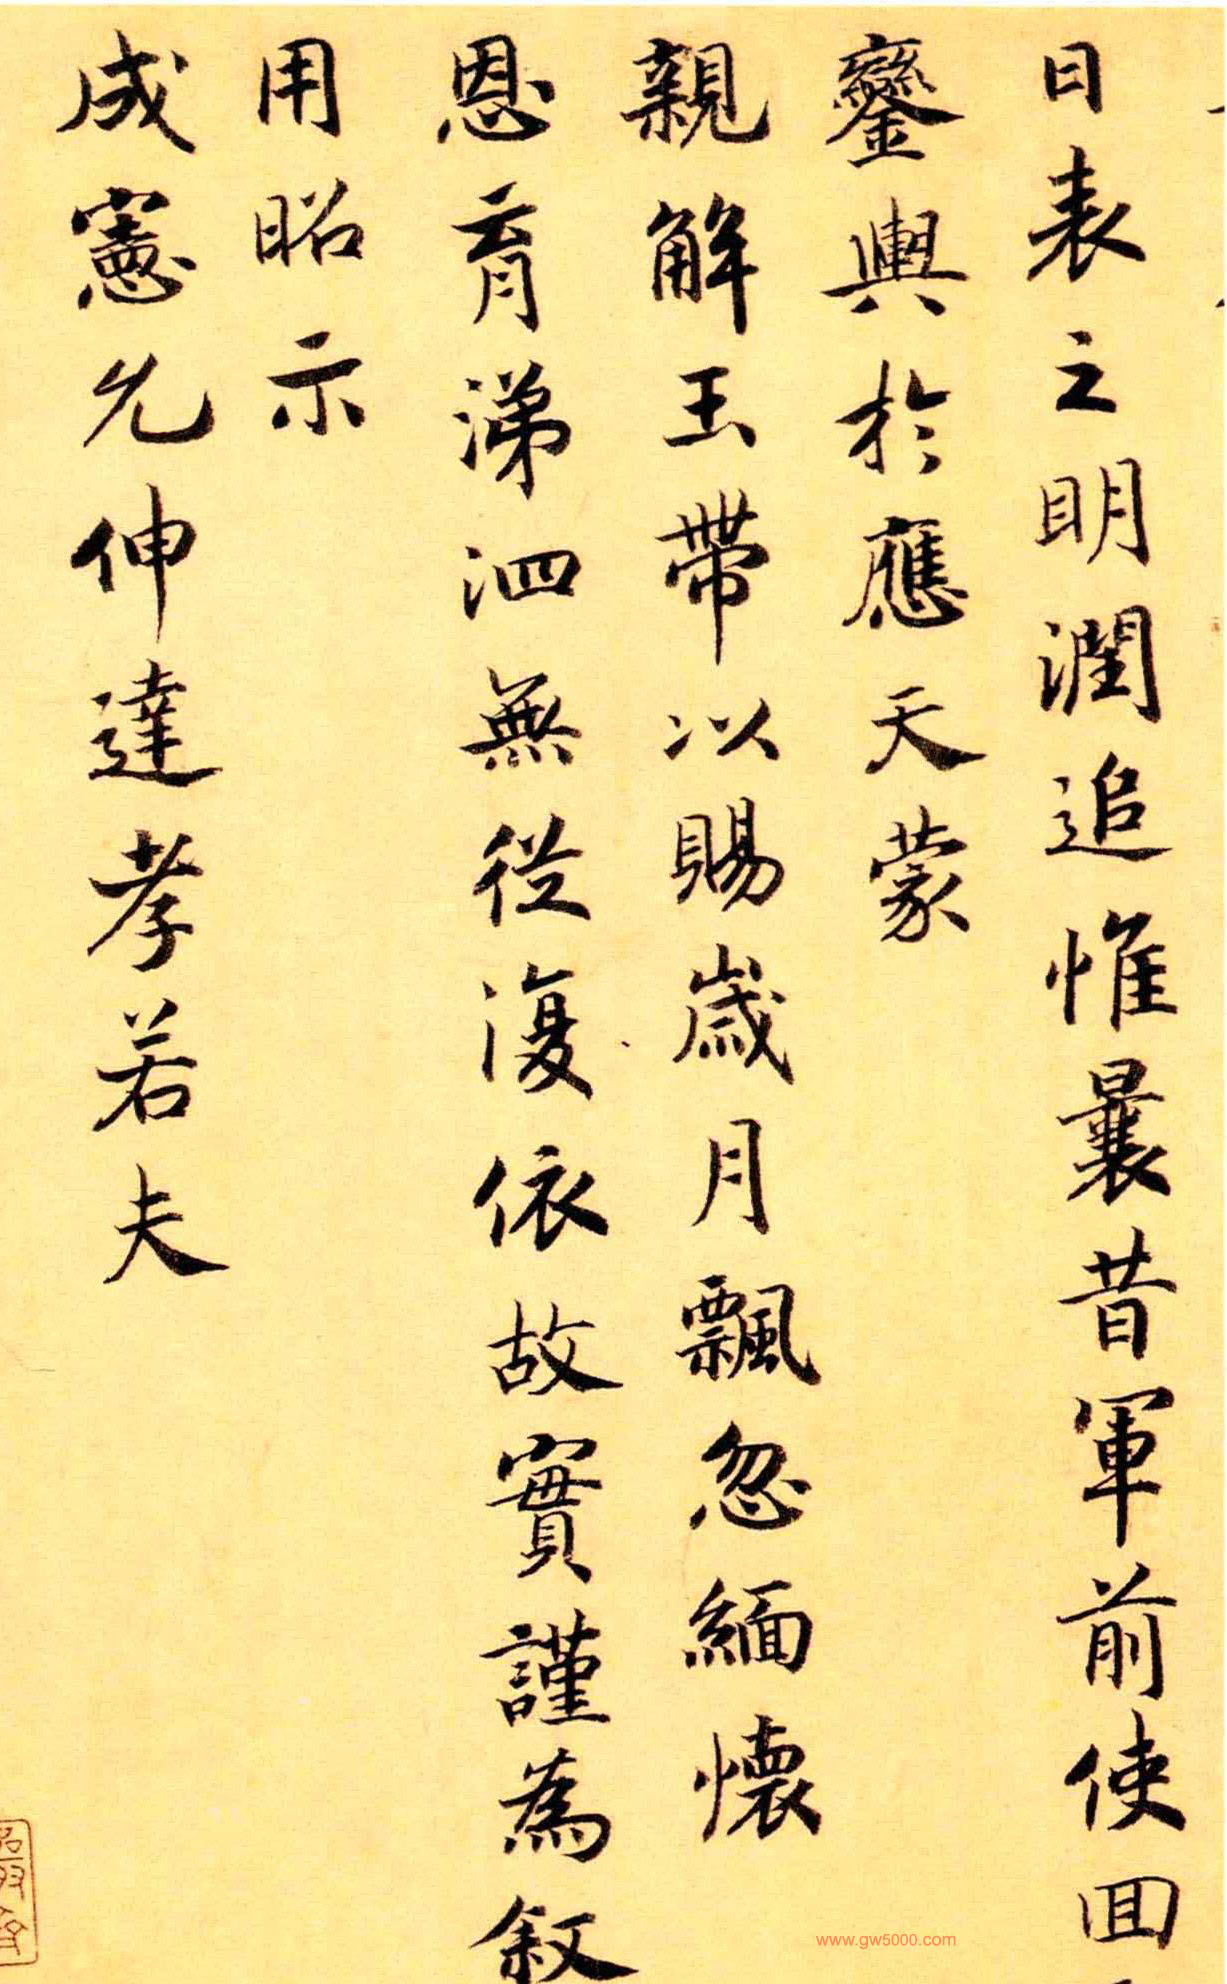 日表之明潤追惟曩昔軍前使回
鑾輿於應天蒙
親解玉帶以賜歲月飄忽緬懷
恩育涕泗無從復依故實謹為叙
用昭示
成憲允伸達孝若夫
www.gw5000.com